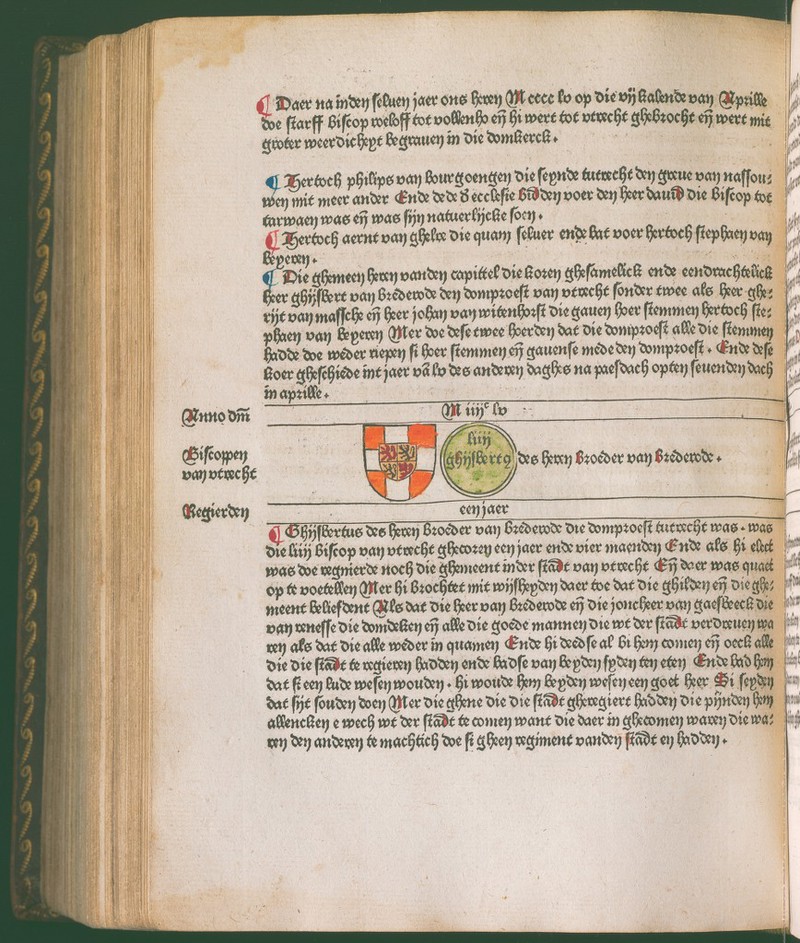 ¶ Daer na inden seluen jaer ons heren M cccc lv op die vij kalende van Aprille
doe starff biscop roeloff tot vollenho eñ hi wert tot vtrecht ghebrocht eñ wert mit
groter weerdicheyt begrauen in die domkerck.
¶ Hertoch philips van bourgoengen die seynde tutrecht den greue van nassou⸗
wen mit meer ander Ende dede d ecclesie bidden voer den heer dauid die biscop tot
tarwaen was eñ was sijn natuerlijcke soen.
¶ Hertoch aernt van ghelre die quam seluer ende bat voer hertoch stephaen van
beyeren.
¶ Die ghemeen heren vanden capittel die koren ghesamelick ende eendrachtelick
heer ghijsbert van brederode den domproest van vtrecht sonder twee als heer ghe⸗
rijt van massche eñ heer johan van witenhorst die gauen hoer stemmen hertoch ste⸗
phaen van beyeren Mer doe dese twee hoerden dat die domproest alle die stemmen
hadde doe weder riepen si hoer stemmen eñ gauense mede den domproest. Ende dese
koer gheschiede int jaer vā lv des anderen daghes na paesdach opten seuenden dach
in aprille.
Anno dm̄ M iiijᶜ lv
Biscoppen liiij
van vtrecht ghijsbertꝰ des heren broeder van brederode.
Regierden een jaer
¶ Ghijsbertus des heren broeder van brederode die domproest tutrecht was. was
die liiij biscop van vtrecht ghecoren een jaer ende vier maenden Ende als hi elect
was doe regnierde noch die ghemeent inder stadt van vtrecht Eñ daer was quaet
op te voetellen Mer hi brochtet mit wijsheyden daer toe dat die ghilden eñ die ghe⸗
meent beliefdent Als dat die heer van brederode eñ die joncheer van gaesbeeck die
van renesse die domdeken eñ alle die goede mannen die wt der stadt verdreuen wa
ren als dat die alle weder in quamen Ende hi deedse al bi hem comen eñ oeck alle
die die stadt te regieren hadden ende badse van beyden syden ten eten Ende bad hem
dat si een lude wesen wouden. hi woude hem beyden wesen een goet heer Si seyden
dat sijt souden doen Mer die ghene die die stadt gheregiert hadden die pijnden hem
allencken e wech wt der stadt te comen want die daer in ghecomen waren die wa⸗
ren den anderen te machtich doe si gheen regiment vanden stadt en hadden.